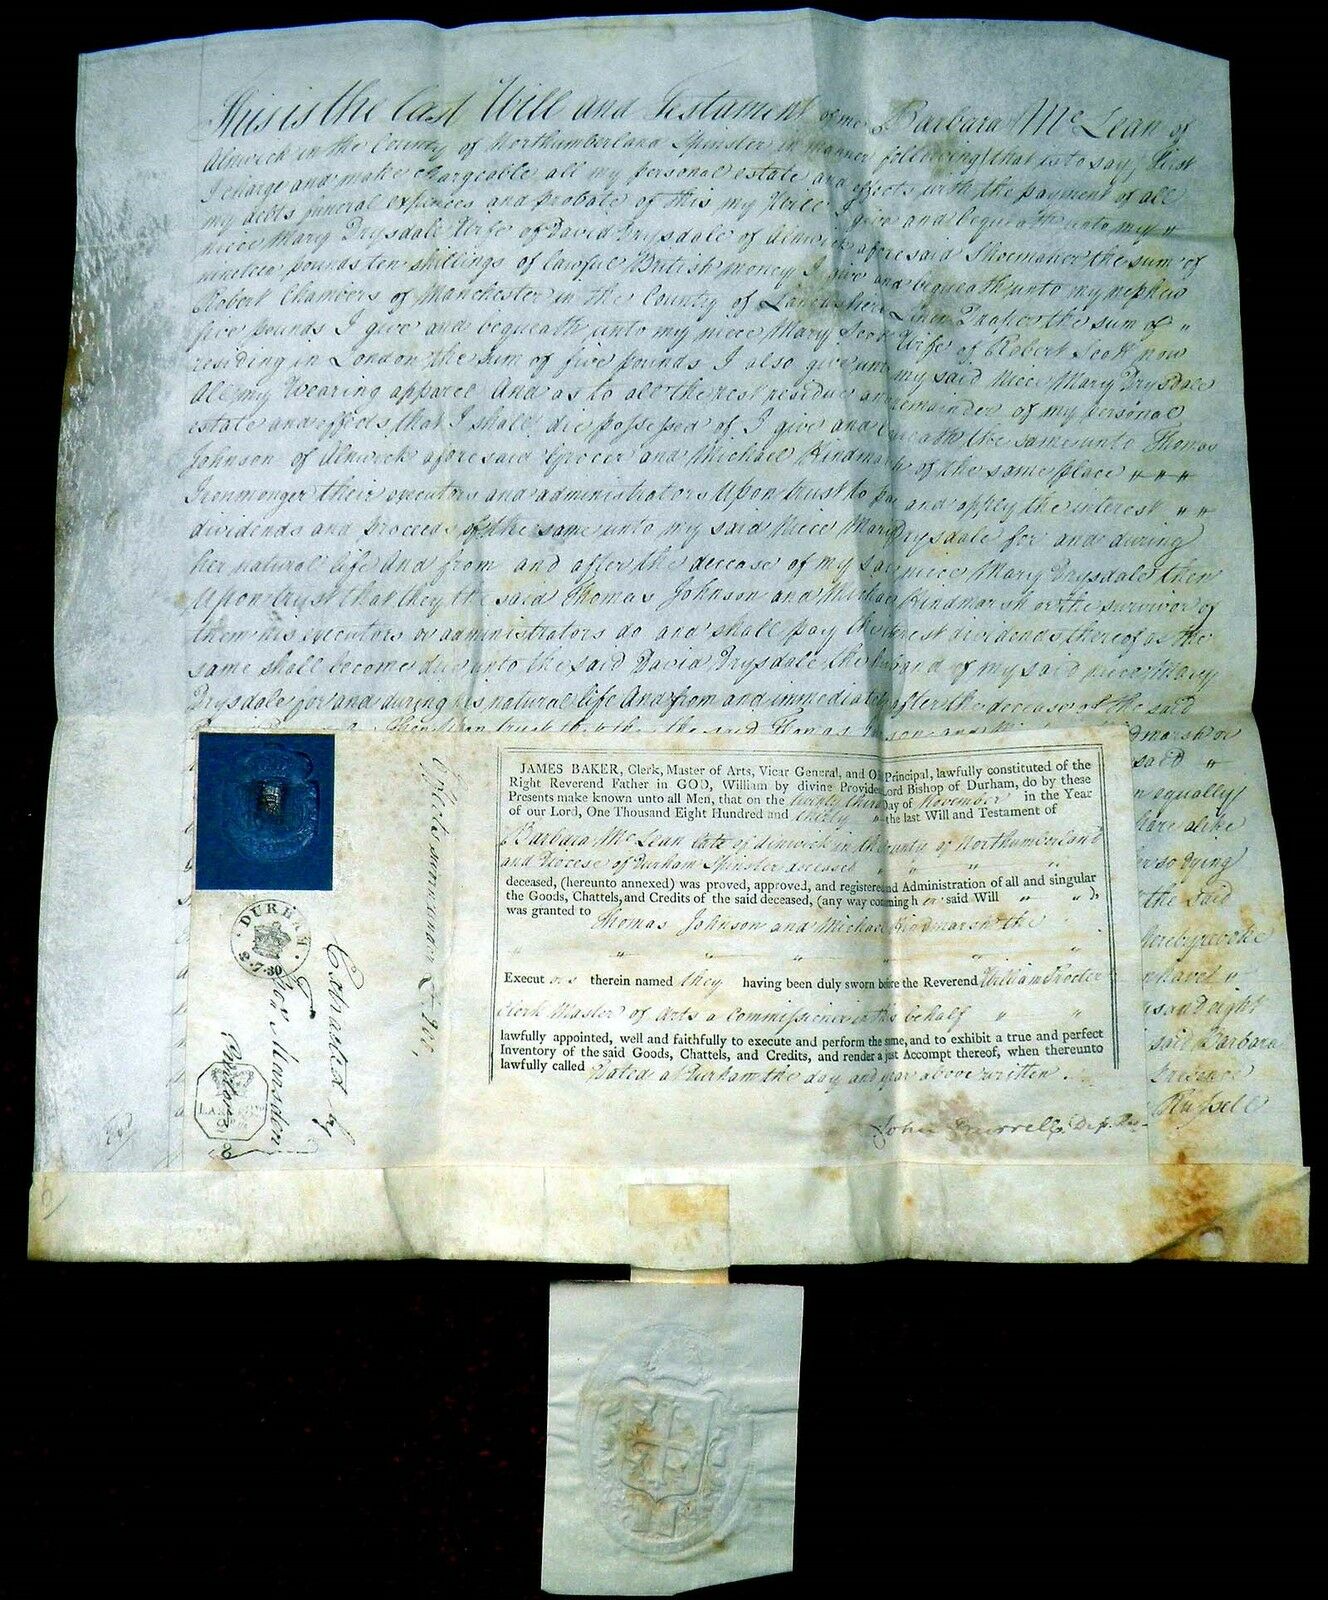 This is the last Will and Testament of me Barbara Mc Lean of
Alnwick in the County of Northumberland Spinster in manner following (that is to say) First
I charge and make chargeable all my personal estate and effects with the payment of all
my debts funeral expences and probate of this my Will I give and bequeath unto my "
niece Mary Drysdale Wife of David Drysdale of Alnwick aforesaid Shoemaker the sum of
nineteen pounds ten shillings of lawful British money I give and bequeath unto my nephew
Robert Chambers of Manchester in the County of Lancashire Linen Draper the sum of "
five pounds I give and bequeath unto my niece Mary Scott Wife of Robert Scott now
residing in London the sum of five pounds I also give unto my said Niece Mary Drysdale
all my Wearing apparel And as to all the rest residue and remainder of my personal
estate and effects that I shall die possessed of I give and bequeath the same unto Thomas
Johnson of Alnwick aforesaid Grocer and Michael Hindmarsh of the same place
Ironmonger their executors and administrators Upon trust to pay and apply the interest " "
dividends and proceeds of the same unto my said Niece Mary Drysdale for and during
her natural life And from and after the decease of my said niece Mary Drysdale then
Upon trust that they the said Thomas Johnson and Michael Hindmarsh or the survivor of
them his executors or administrators do and shall pay the interest dividends thereof as the
same shall become due unto the said David Drysdale the husband of my said niece Mary
Drysdale for and during his natural life And from and immediately after the decease of the said
upon trust the said Thomas Johnson and Hindmarsh or
said
equally
share alike
so dying
the said
hereby revoke
have "
and eight
said Barbara
presence
Russell
JAMES BAKER, Clerk, Master of Arts, Vicar General, and Principal, lawfully constituted of the
Right Reverend Father in GOD, William by divine Providence Lord Bishop of Durham, do by these
Presents make known unto all Men, that on the twenty third Day of November in the Year
of our Lord, One Thousand Eight Hundred and thirty " the last Will and Testament of
Barbara Mc Lean late of Alnwick in the County of Northumberland
and Diocese of Durham Spinster deceased " " " "
deceased, (hereunto annexed) was proved, approved, and registered and Administration of all and singular
the Goods, Chattels, and Credits of the said deceased, (any way concerning her said Will " " )
was granted to Thomas Johnson and Michael Hindmarsh the
" " " " "
Executors therein named they having been duly sworn before the Reverend William Procter
Clerk Master of Arts a Commissioner in this behalf " "
lawfully appointed, well and faithfully to execute and perform the same, and to exhibit a true and perfect
Inventory of the said Goods, Chattels, and Credits, and render a just Accompt thereof, when thereunto
lawfully called Dated at Durham the day and year above written.
John Burrell, Dep. Reg
Effects sworn under £200,
Extracted by
Marsden
Proctor
DURHAM
2.7.30